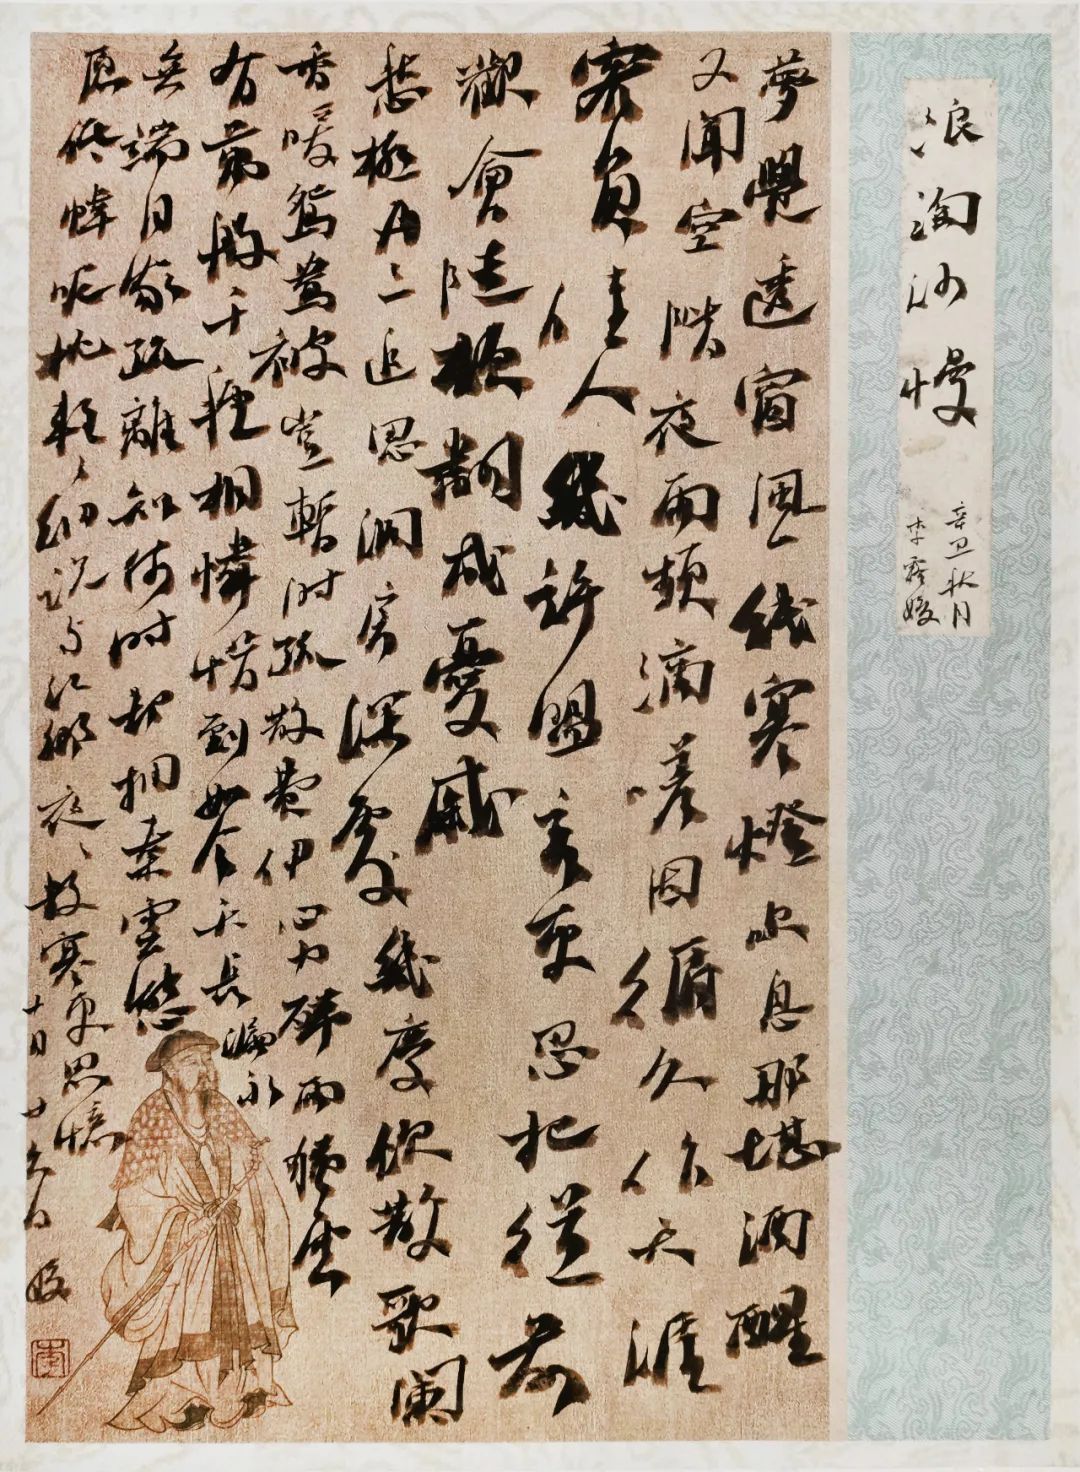 浪淘沙慢
辛丑秋月
夢覺透窗風一线寒燈吹息那堪酒醒
又聞空階夜雨頻滴嗟因循久作天涯
客負佳人幾許盟言更忍把從前
歡會陡頓翻成憂戚
愁極再三追思洞房深處幾度飲散歌闌
香暖鴛鴦被豈暫時疏散費伊心力殢雨尤雲
有萬般千種相憐惜到如今天長漏永
無端自家疏離知何時却擁秦雲態
愿低幃昵枕輕輕細說与江鄉夜夜數寒更思憶